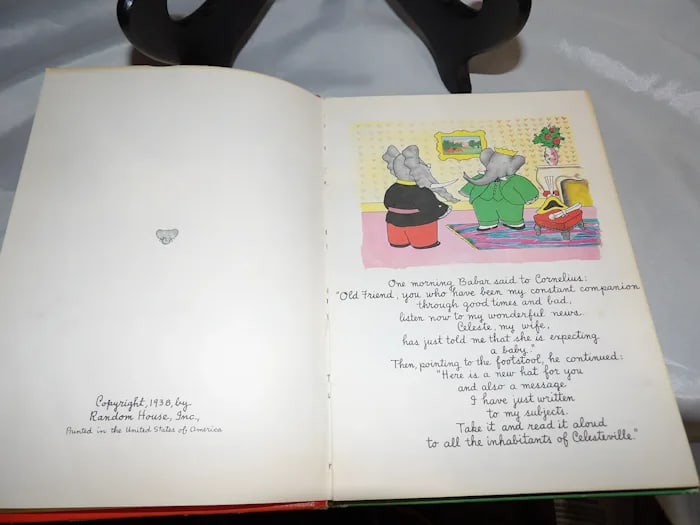 Copyright, 1938, by
Random House, Inc.,
Printed in the United States of America
One morning, Babar said to Cornelius:
"Old Friend, you who have been my constant companion
through good times and bad,
listen now to my wonderful news.
Celeste, my wife,
has just told me that she is expecting
a baby."
Then, pointing to the footstool, he continued:
"Here is a new hat for you
and also a message
I have just written
to my subjects.
Take it and read it aloud
to all the inhabitants of Celesteville."